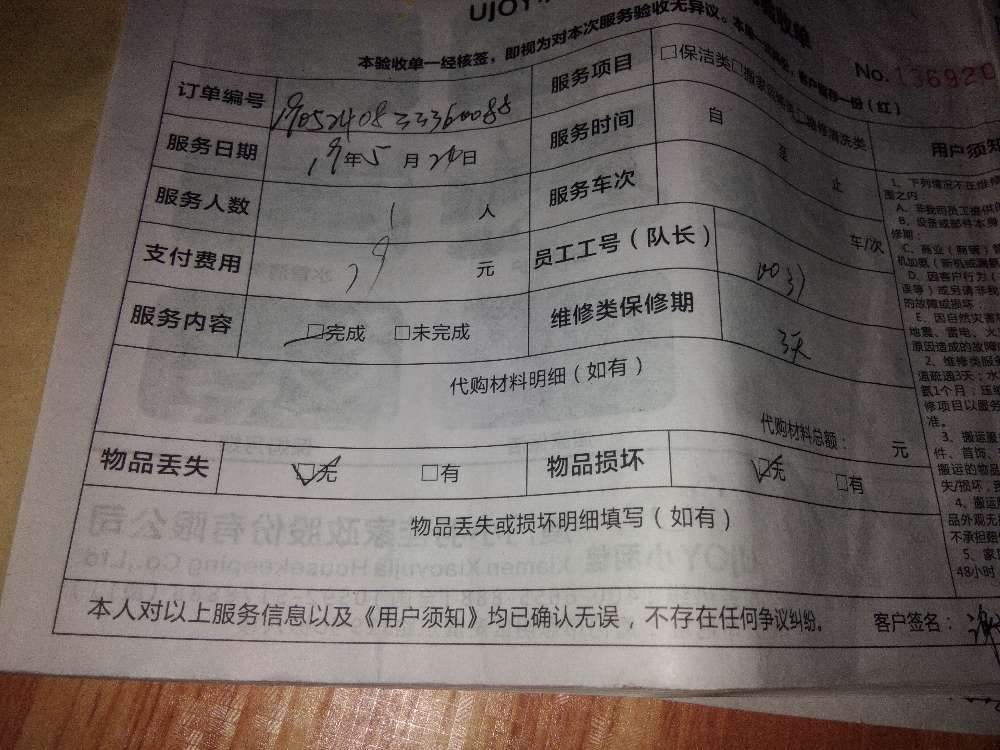 UJOY
验收单
本验收单一经核签，即视为对本次服务验收无异议。本单一式两份，客户留存一份（红）
No. 136920
订单编号 1905240833360088
服务项目 □保洁类□搬家 维修清洗类
服务日期 19年5月24日
服务时间 自 至 止
服务人数 1 人
服务车次 车/次
支付费用 19 元
员工工号（队长） 0031
服务内容 □完成 □未完成
维修类保修期 3天
代购材料明细（如有）
代购材料总额： 元
物品丢失 ☑无 □有
物品损坏 ☑无 □有
物品丢失或损坏明细填写（如有）
本人对以上服务信息以及《用户须知》均已确认无误，不存在任何争议纠纷。 客户签名：
用户须知
1、下列情况不在维
围之内：
A、非我司员工提供
B、设备或部件本身
修期；
C、商业（商铺）
机加氨（新机或漏氨
D、因客户行为（
误等）或另请非我
的故障或损坏；
E、因自然灾害
地震、雷电、火
原因造成的故障
2、维修类服
道疏通3天；水
氨1个月；压缩
修项目以服务
准。
3、搬运服
件、首饰、
搬运的物品
失/损坏，
4、搬运
品外观无
不承担赔
5、家
48小时